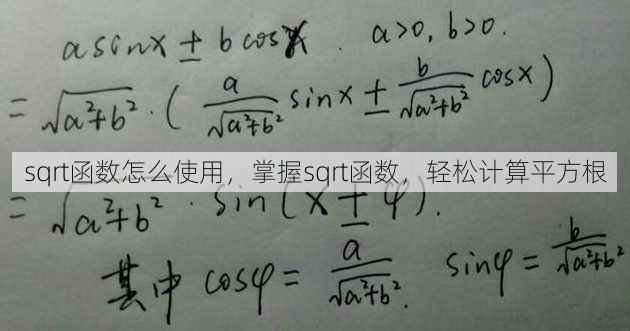 a sinx ± b cosx . a>0, b>0.
= √a²+b² · ( a/√a²+b² sinx ± b/√a²+b² cosx )
sqrt函数怎么使用，掌握sqrt函数，轻松计算平方根
= √a²+b² · sin(x ± φ).
其中 cosφ = a/√a²+b² . sinφ = b/√a²+b²